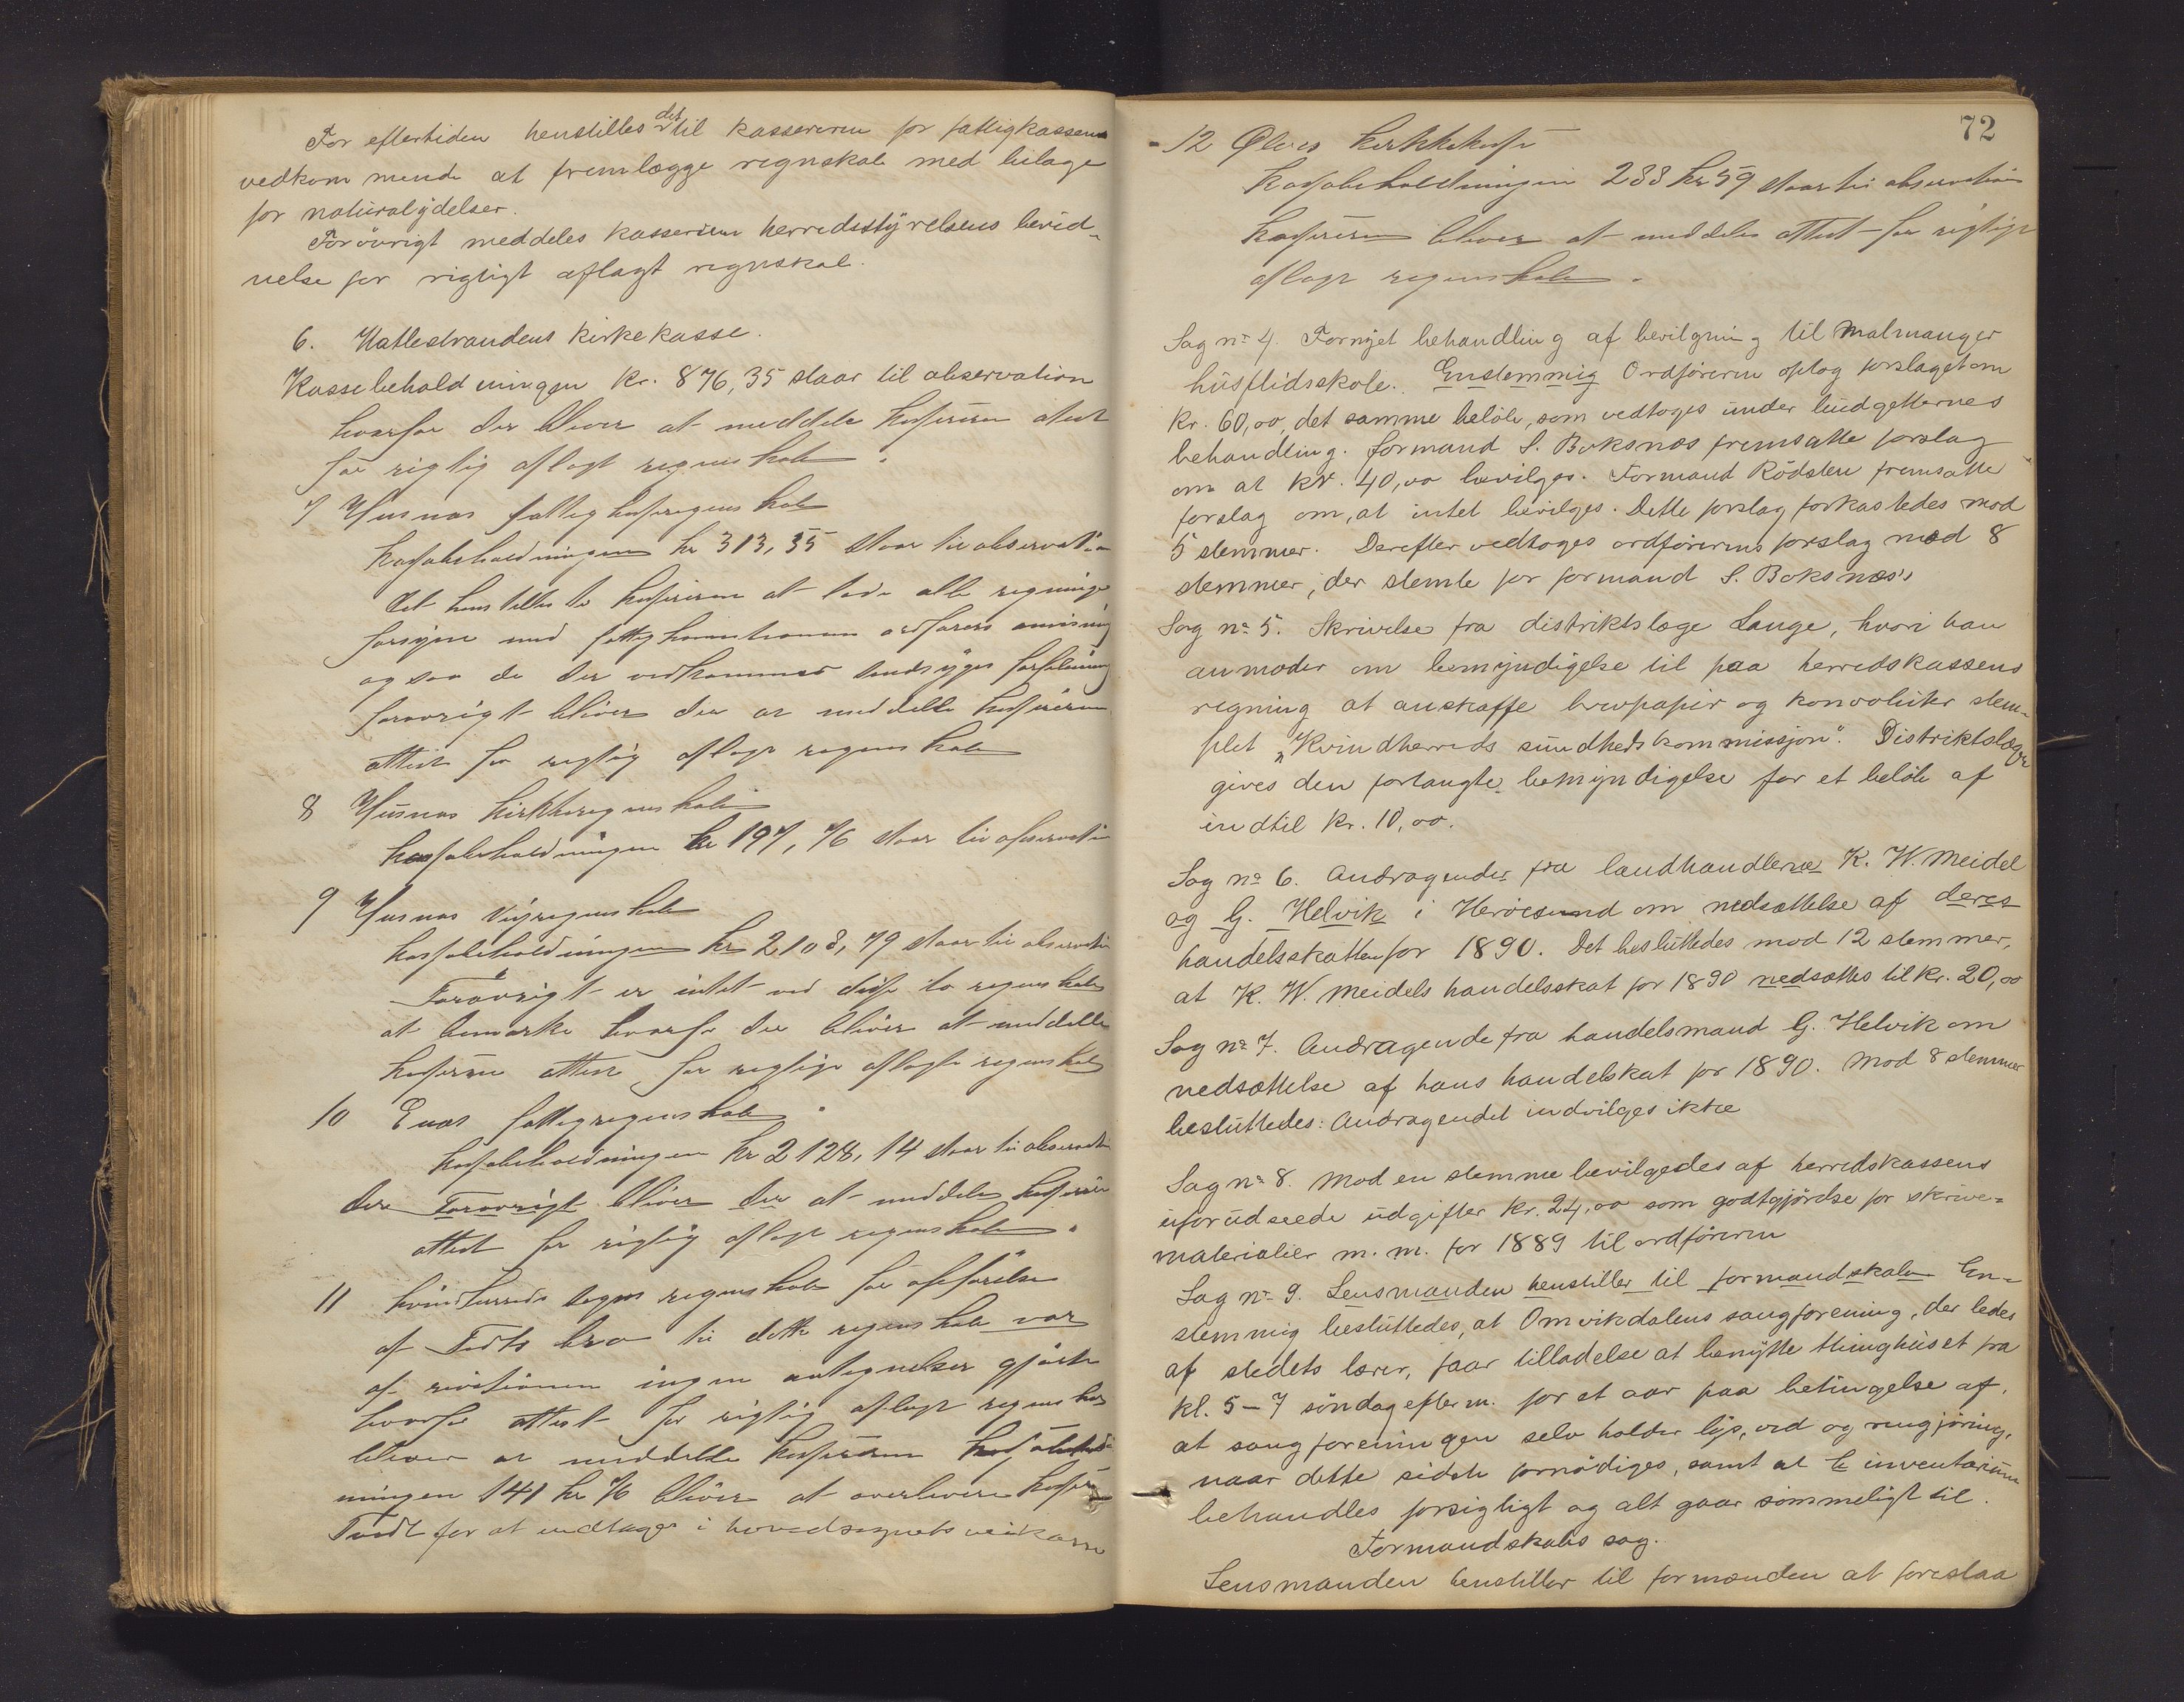 For eftertiden henstilles det til kassereren for fattigkassens
vedkommende at fremlægge regnskab med bilage
for naturalydelser.
Forøvrigt meddeles kassereren herredsstyrelsens bevid-
nelse for rigtigt aflagt regnskab.
6. Hatlestrandens kirkekasse.
Kassebeholdningen kr. 876,35 staar til observation
hvorfor der bliver at meddele kassereren attest
for rigtig aflagt regenskab.
7 Husnæs fattigkasseregenskab
Kassabeholdningen kr 313,35 staar til observation
Det henstilles til kassereren at lade alle regninger
forsyne med fattigkommissionens ordførers anvisning
ogsaa de der vedkommer sindsyges forpleining
forøvrigt bliver der at meddelle kassereren
attest for rigtig aflagt regenskab
8 Husnæs Kirkkeregenskab
kassabeholdningen kr 197,76 staar til observation
9 Husnæs Veiregenskab
kassabeholdningen kr 2108,79 staar til observation
Forøvrigt er intet ved disse to regenskaber
at bemærke hvorfor der bliver at meddelle
kassereren attest for rigtige aflagte regenskab
10 Enæs fattigregenskab.
Kassabeholdningen kr 2128,14 staar til observation
der Forøvrigt bliver der at meddele kassereren
attest for rigtig aflagt regenskab.
11 Kvindherreds sogns regenskab for opførelse
af bro til dette regenskab var
af revisionen ingen antegnelser gjort
hvorfor attest for rigtig aflagt regenskab
bliver at meddelle kassereren Kassabehold-
ningen 141 kr 76 bliver at overlevere kasserer
Tvedt for at indtages i hovedsognets veikasse
72
12 Ølves Kirkkekasse
Kassabeholdningen 233 kr 59 staar til observation
Kassereren bliver at meddeles attest for rigtigt
aflagt regenskab.
Sag no 4. Fornyet behandling af bevilgning til Malmanger
husflidsskole. Enstemmig Ordføreren optog forslaget om
kr. 60,00, det samme beløb, som vedtoges under budgetternes
behandling. formand S. Boksnæs fremsatte forslag
om at kr. 40,00 bevilges. Formand Rødsten fremsatte
forslag om, at intet bevilges. Dette forslag forkastedes mod
5 stemmer. Derefter vedtoges ordførerens forslag mod 8
stemmer, der stemte for formand S. Boksnæs's
Sag no 5. Skrivelse fra distriktslæge Lange, hvori han
anmoder om bemyndigelse til paa herredskassens
regning at anskaffe brevpapir og konvoluter stem-
plet "Kvindherreds sundhedskommissjon". Distriktslægen
gives den forlangte bemyndigelse for et beløb af
indtil kr. 10,00.
Sag no 6. Andragender fra landhandlerne K. W. Meidel
og G. Helvik i Herøesund om nedsættelse af deres
handelsskatter for 1890. Det besluttedes mod 12 stemmer,
at K. W. Meidels handelsskat for 1890 nedsættes til kr. 20,00
Sag no 7. Andragende fra handelsmand G. Helvik om
nedsættelse af hans handelskat for 1890. Mod 8 stemmer
besluttedes: Andragendet indvilges ikke
Sag no 8. Mod en stemme bevilgedes af herredskassens
uforudseede udgifter kr. 24,00 som godtgjørelse for skrive-
materialier m.m. for 1889 til ordføreren
Sag no 9. Lensmanden henstiller til formandskabet En-
stemmig besluttedes, at Omvikdalens sangforening, der ledes
af stedets lærer, faar tilladelse at benytte thinghuset fra
kl. 5-7 søndag efterm. for et aar paa betingelse af,
at sangforeningen selv holder lys, ved og rengjøring,
naar dette sidste fornødiges, samt at inventarium
behandles forsigtigt og alt gaar sømmeligt til.
Formandskabs sag.
Lensmanden henstiller til formænden at foreslaa